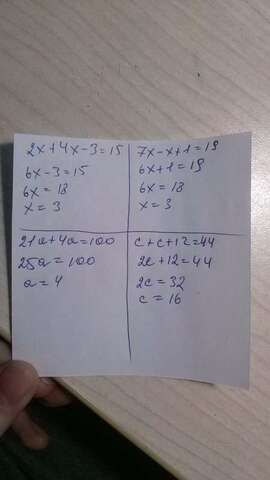 2x+4x-3=15
6x-3=15
6x=18
x=3
7x-x+1=19
6x+1=19
6x=18
x=3
21a+4a=100
25a=100
a=4
c+c+12=44
2c+12=44
2c=32
c=16